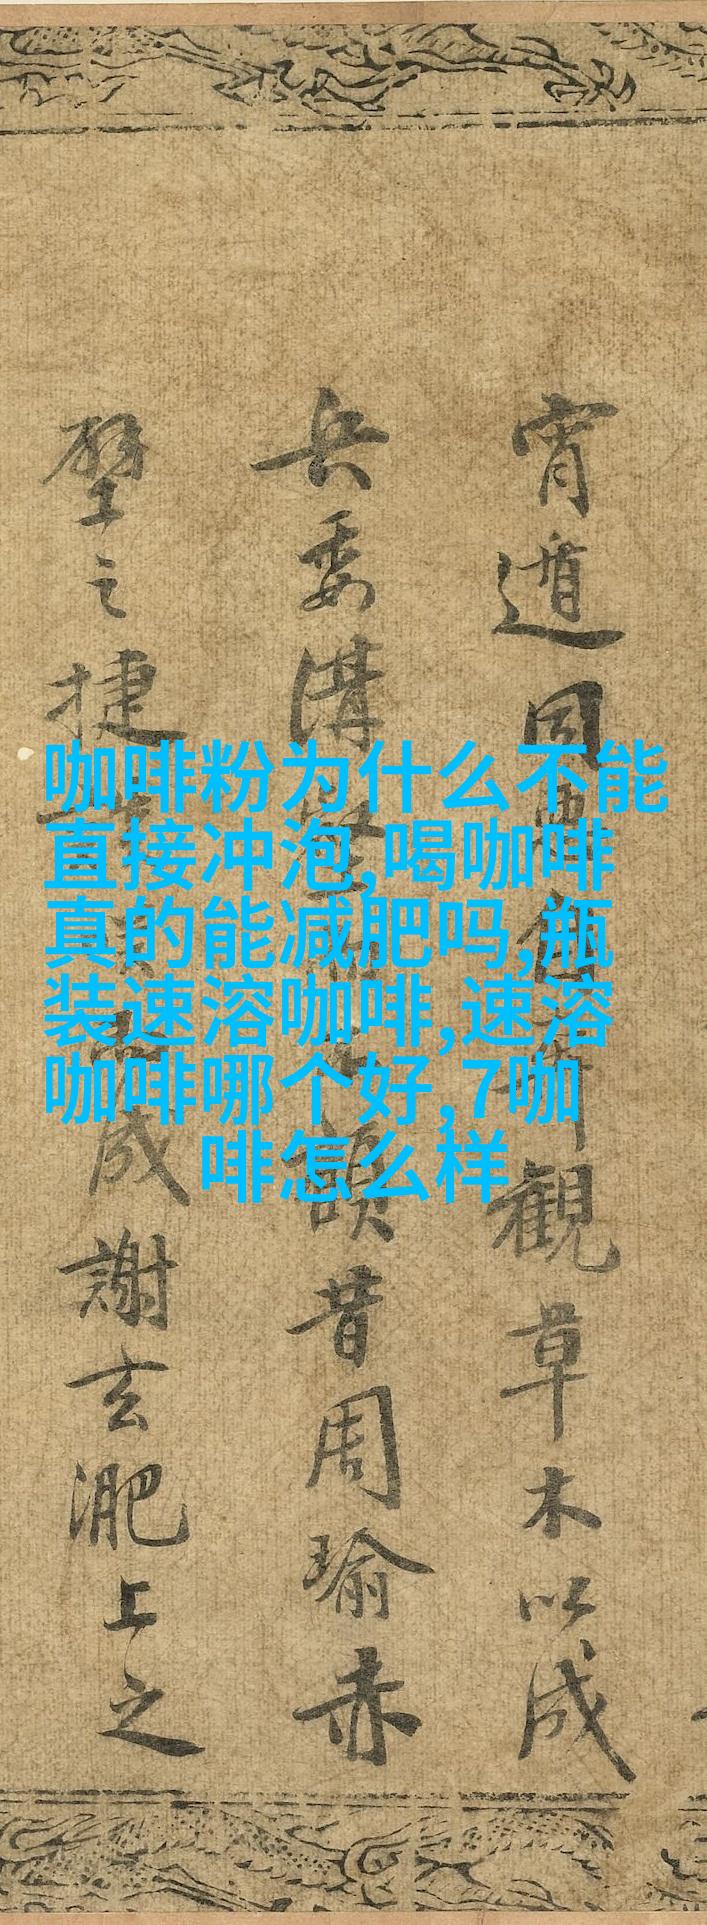 咖啡粉为什么不能
直接冲泡,喝咖啡
真的能减肥吗,瓶
装速溶咖啡,速溶
咖啡哪个好,7咖
啡怎么样
宵遁同觀草木以成
兵委溝壑頭昔周瑜赤
壁之捷成謝玄淝上之